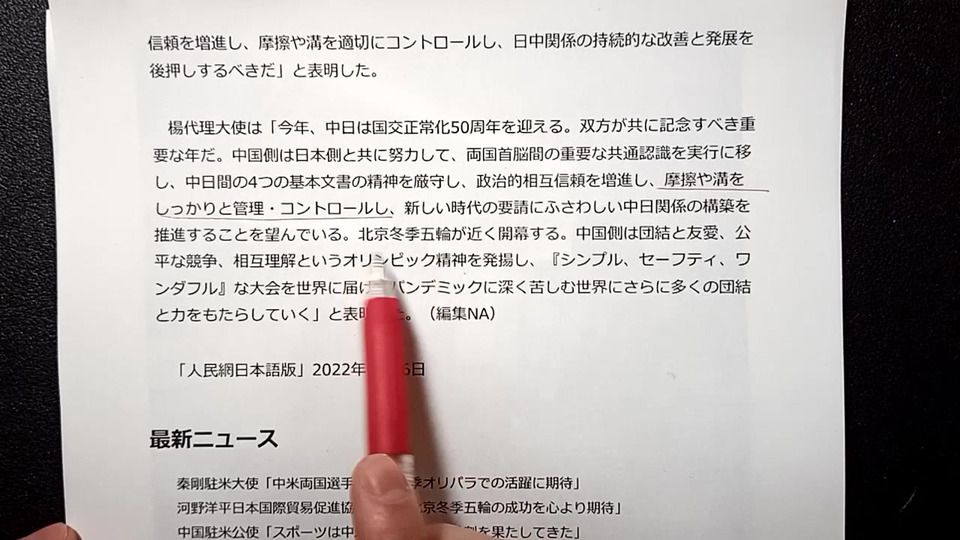 信頼を増進し、摩擦や溝を適切にコントロールし、日中関係の持続的な改善と発展を
後押しするべきだ」と表明した。
楊代理大使は「今年、中日は国交正常化50周年を迎える。双方が共に記念すべき重
要な年だ。中国側は日本側と共に努力して、両国首脳間の重要な共通認識を実行に移
し、中日間の4つの基本文書の精神を厳守し、政治的相互信頼を増進し、摩擦や溝を
しっかりと管理・コントロールし、新しい時代の要請にふさわしい中日関係の構築を
推進することを望んでいる。北京冬季五輪が近く開幕する。中国側は団結と友愛、公
平な競争、相互理解というオリンピック精神を発揚し、『シンプル、セーフティ、ワ
ンダフル』な大会を世界に届け、パンデミックに深く苦しむ世界にさらに多くの団結
と力をもたらしていく」と表明した。（編集NA）
「人民網日本語版」2022年 6日
最新ニュース
秦剛駐米大使「中米両国選手 季オリパラでの活躍に期待」
河野洋平日本国際貿易促進協 京冬季五輪の成功を心より期待」
中国駐米公使「スポーツは中 割を果たしてきた」